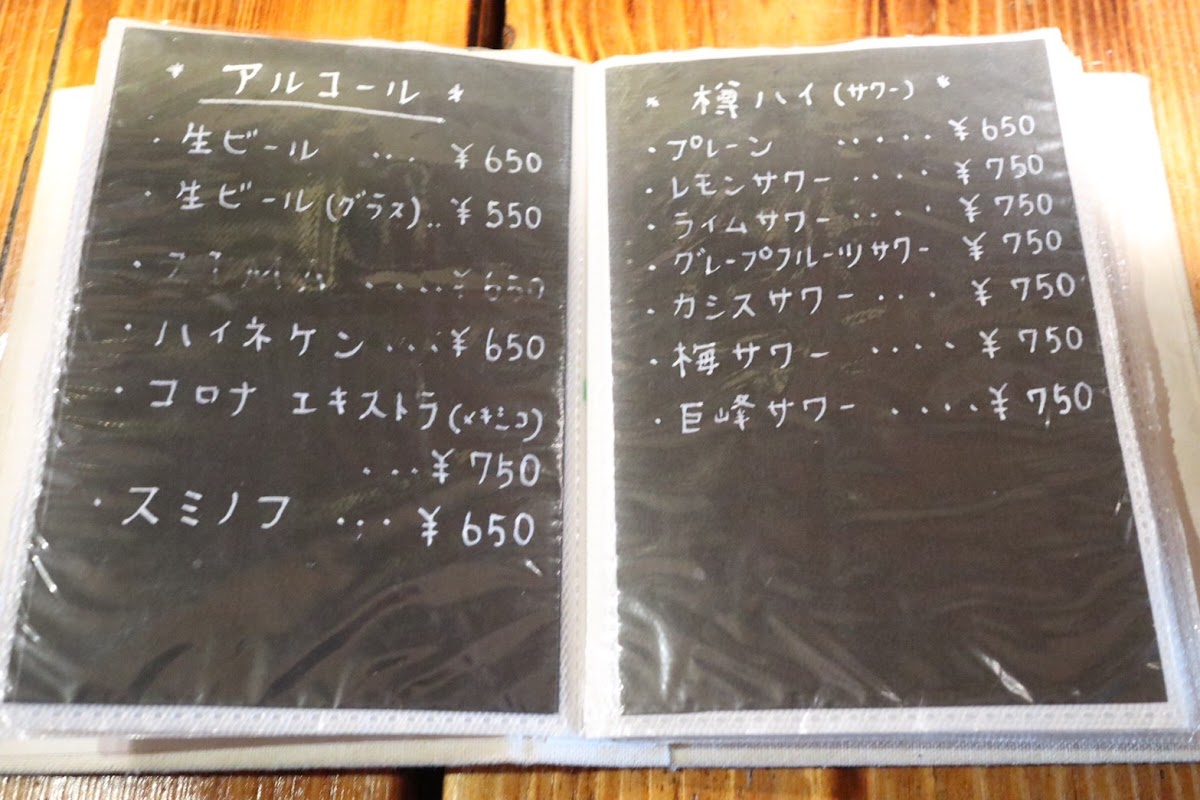 * アルコール *
・生ビール ... ¥650
・生ビール(グラス).. ¥550
・ ..... ¥650
・ハイネケン ....¥650
・コロナ エキストラ(メキシコ)
...¥750
・スミノフ ... ¥650
* 樽ハイ(サワー) *
・プレーン ..... ¥650
・レモンサワー .... ¥750
・ライムサワー .... ¥750
・グレープフルーツサワー ¥750
・カシスサワー ... ¥750
・梅サワー .... ¥750
・巨峰サワー ....¥750